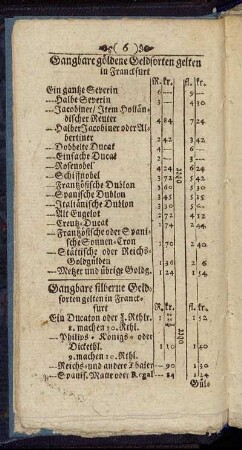 ( 6 )
Gangbare goldene Geldsorten gelten
in Franckfurt
R. kr. fl. kr.
Ein gantze Severin 6 9
—Halbe Severin 3 4 30
—Jacobiner/ Item Hollän-
discher Reuter 4 84 7 24
—Halber Jacobiner oder Al-
bertiner 2 42 3 42
—Dobbelte Ducat 4 6
—Einfache Ducat 2 3
—Rosenobel 4 24 6 24
—Schiffnobel 3 72 5 42
—Frantzösische Dublon 3 60 5 30
—Spanische Dublon 3 60 5 30
—Italiänische Dublon 3 5
—Alt Engelot 2 3
—Creutz-Ducat 1 2
—Frantzösische oder Spani-
sche Sonnen-Cron 1 70 2 40
—Stättische oder Reichs-
Goldgülden 1 36 2 6
—Metzer und übrige Goldg. 1 24 1 54
oder
Gangbare silberne Geld-
sorten gelten in Franck-
furt R. kr. fl. kr.
Ein Ducaton oder
8. machen 10. Rthl.
—Philips- Königs- oder
Dickethl. 1 10 1 40
9. machen 10. Rthl.
—Reichs- und andere Thaler 90 1 30
—Spanis. Matte oder Regal 84 1 24
oder
Gül-